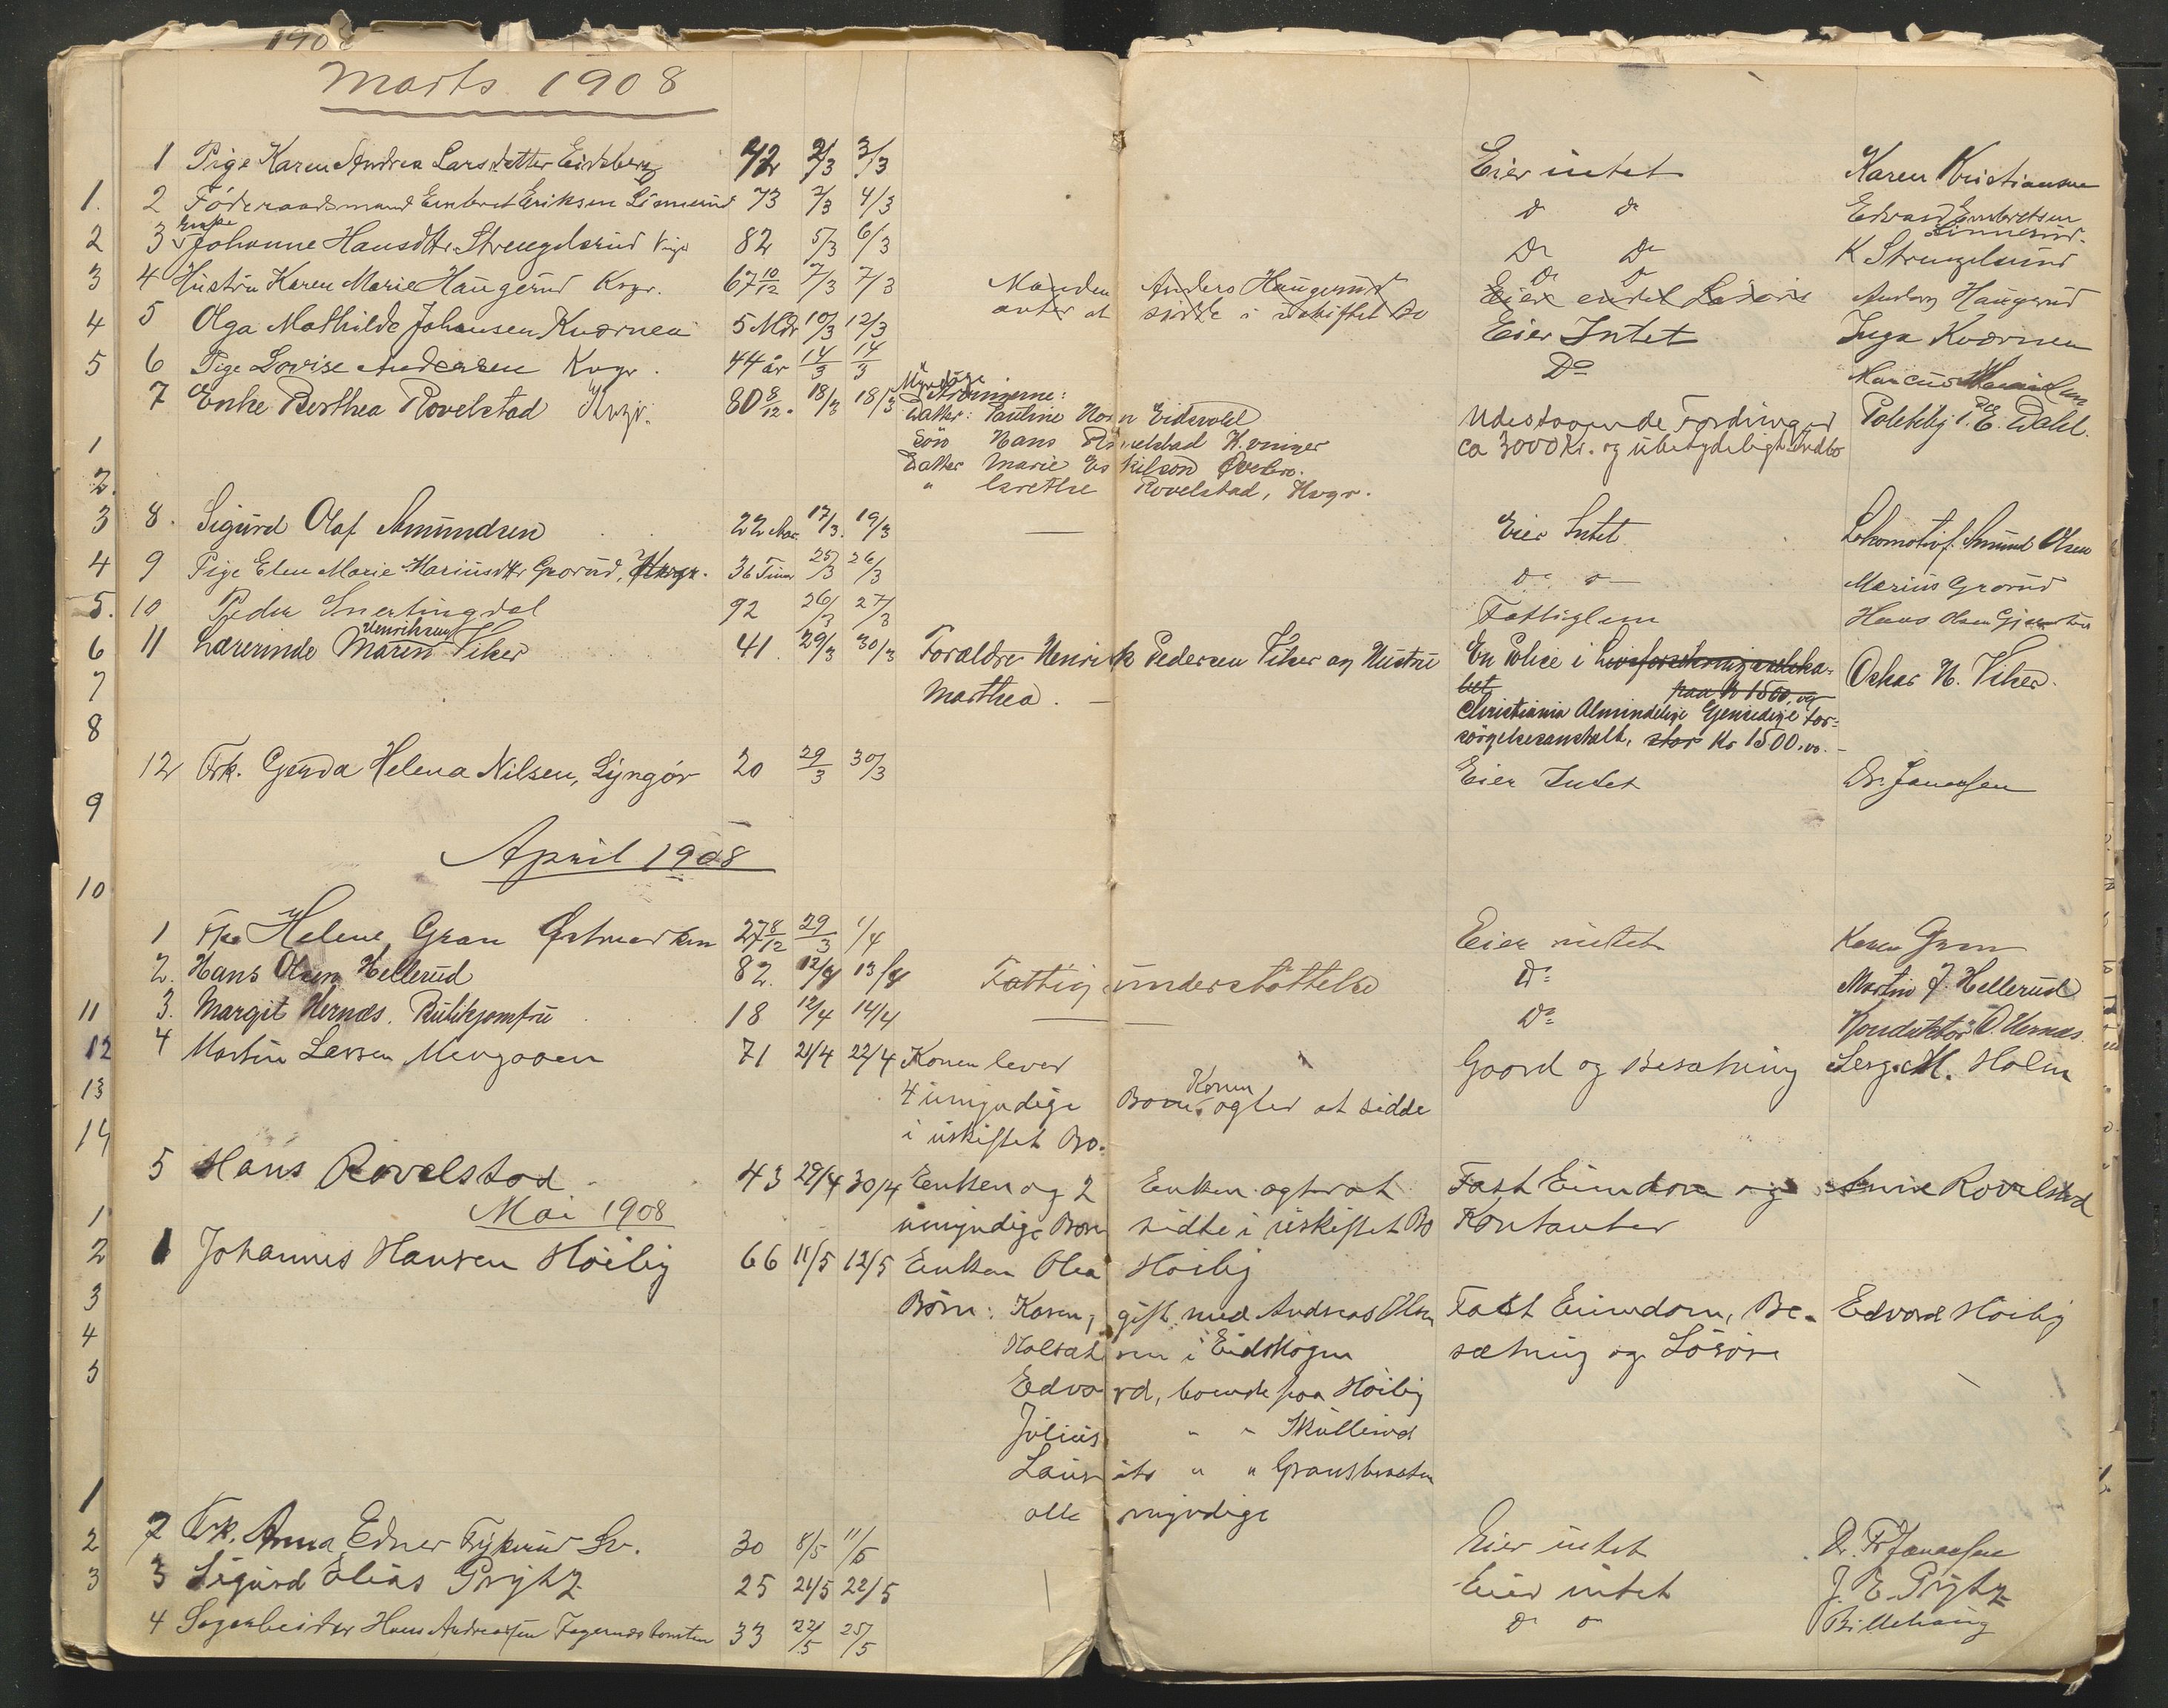 1908
Marts 1908
1 Pige Karen Andrea Larsdatter Eidsberg 42 2/3 3/3 Eier intet Karen Kristiansen
1. 2 Föderaadsmand Embret Eriksen Linnerud 73 2/3 4/3 do do Edvard Embretsen Linnerud.
2 3 Enke Johanne Hansdtr. Strengelsrud Vinger 82 5/3 6/3 Do Do K Strengelsrud
3 4 Hustru Karen Marie Haugerud Kvgr. 67 10/12 7/3 7/3 Manden Anders Haugerud Do Do Anders Haugerud
agter at sidde i uskiftet Bo Eier endel Lösöre
4 5 Olga Mathilde Johansen Kværnen 5 Mdr 10/3 12/3 Eier Intet Inga Kværnen
5 6 Pige Lovise Andersen Kvgr. 44 år 14/3 14/3 Do Marcus
7 Enke Berthea Rovelstad Kvgr. 80 8/12. 18/3 18/3 Myndige Arvingerne:
Datter: Pauline Horn Eidsvold Udestaaende Fordringer Politibtj. P. E. Dahl.
1 Sön Hans Rovelstad Kvinger ca 3000 Kr. og ubetydeligt Indbo
Datter Marie Eskilson Örebro.
2. " Grethe Rovelstad, Kvgr.
3 8. Sigurd Olaf Amundsen 22 Mdr. 17/3. 19/3 — Eier Intet Lokomotivf. Amund Olsen
4 9 Pige Elen Marie Mariusdtr Grorud, Kvgr. 36 Timer 25/3 26/3 do do Marius Grorud
5. 10 Peder Snertingdal 92 26/3 27/3 Fattiglem Hans Olsen
6 11 Lærerinde Maren Henriksen Viker 41. 29/3 30/3 Forældre Henrik Pedersen Viker og Hustru En Police i Livsforsikringsselska- Oskar H. Viker.
7 Marthea. — bet paa Kr 1500, og
Christiania Almindelige Gjensidige For-
8 sörgelsesanstalt, stor Kr 1500.00. —
12 Frk. Gerda Helena Nilsen, Lyngör 20 29/3 30/3 Eier Intet Dr. Janersen
9
April 1908
10
1 Frk Helene Gran Östmarken 27 8/12 29/3 1/4 Eier intet Karen Gran
2. Hans Olsen Hellerud 82. 12/4 13/4 Fattigunderstöttelse Do Martin J. Hellerud
11 3. Margit Hernæs. Butikjomfru 18 12/4 14/4 — Do Konduktör O. Hernæs.
12 4 Martin Larsen Mengaaen 71 21/4 22/4 Konen lever Gaard og Besætning Serg. M. Holm
13 4 umyndige Börn. Konen agter at sidde
14 i uskiftet Bo.
5 Hans Rovelstad 43 29/4 30/4 Enken og 2 Enken agter at Fast Eiendom og Anne Rovelstad
1 Mai 1908 umyndige Börn sidde i uskiftet Bo Kontanter
2 1 Johannes Hansen Höiby 66 11/5 12/5 Enken Olea Höiby
3 Börn: Karen, gift med Andreas Olsen Fast Eiendom, Be- Edvard Höiby
4 Holsætren i Eidskogen sætning og Lösöre
5 Edvard, boende paa Höiby
Julius " " Skullerud
Laurits " " Gransbraaten
1 alle myndige
2 2 Frk. Anna Edner Fykerud Sv. 30 8/5 11/5 Eier intet Dr. Fr Janersen
3 3 Sigurd Elias Prytz 25 21/5 22/5 Eier intet J. E. Prytz
4 Sagarbeider Hans Andreassen Fagernæstomten 33 22/5 25/5 do do Billehaug